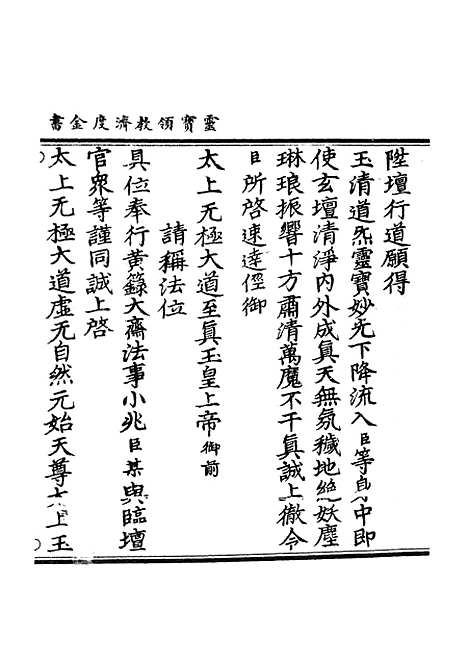 靈寶領教濟度金書
陞壇行道願得
玉清道炁靈寶妙光下降流入臣等身中即
使玄壇清淨内外成真天無氛穢地絶妖塵
琳琅振響十方肅清萬魔不干真誠上徹令
臣所啓速達徑御
太上无極大道至真玉皇上帝御前
請稱法位
具位奉行黄籙大齋法事小兆臣某與臨壇
官衆等謹同誠上啓
太上无極大道虚无自然元始天尊太上玉